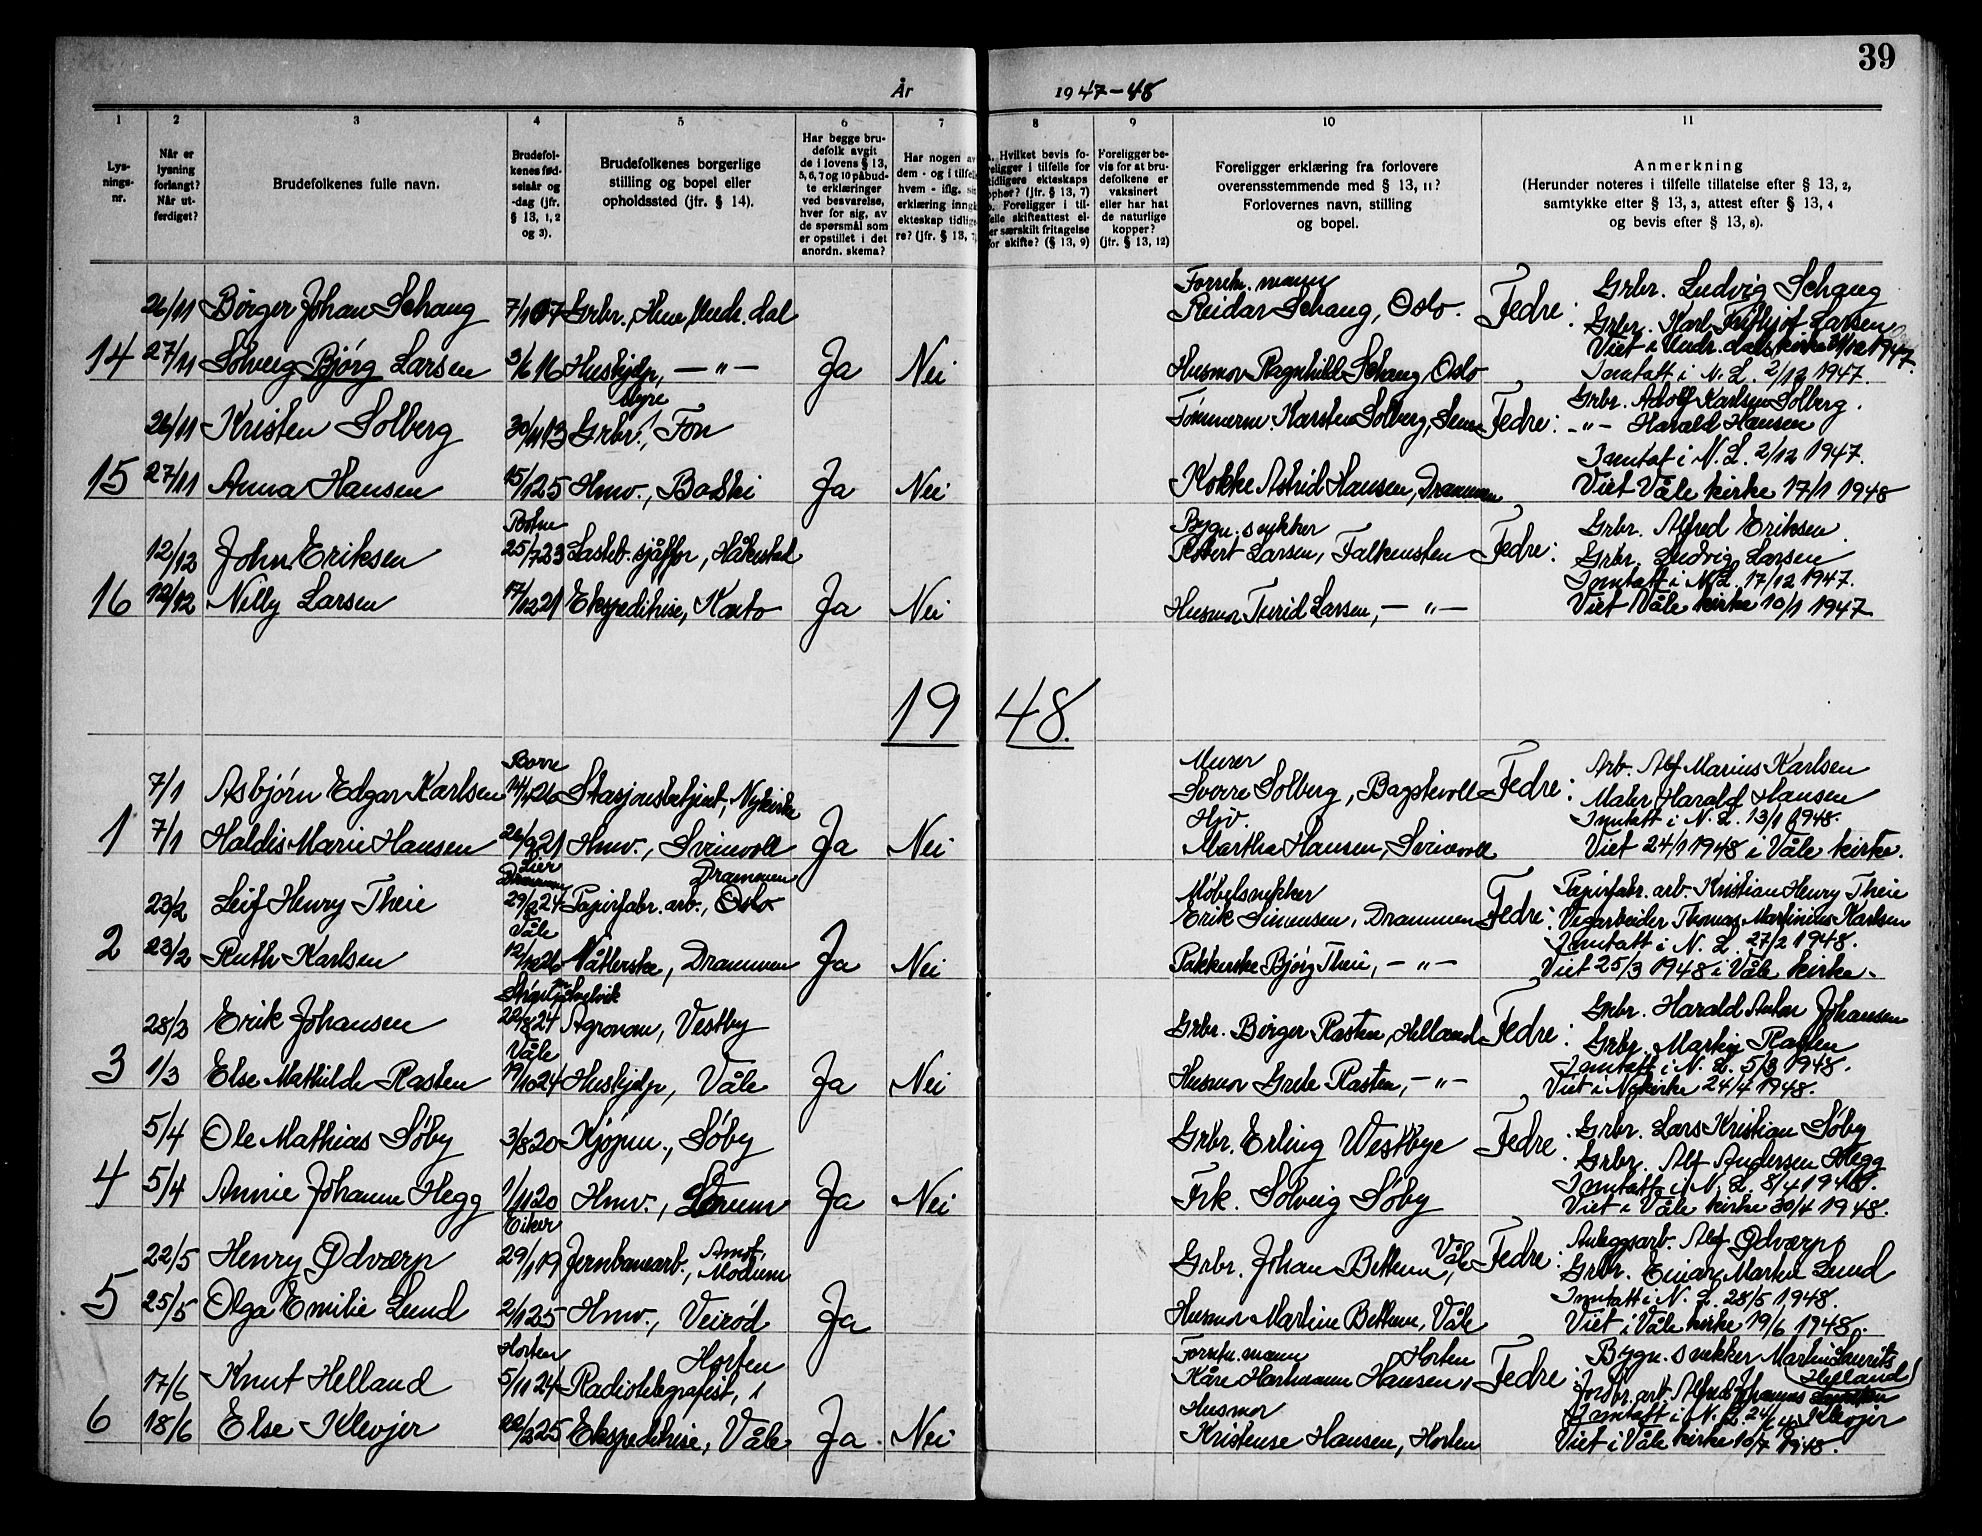 39
År 1947-48
1 2 3 4 5 6 7 8 9 10 11
Lys-
nings-
nr.
Når er
lysning
forlangt?
Når ut-
ferdiget?
Brudefolkenes fulle navn.
Brudefol-
kenes fød-
selsår og
-dag (jfr.
§ 13, 1, 2
og 3).
Brudefolkenes borgerlige
stilling og bopel eller
opholdssted (jfr. § 14).
Har begge bru-
defolk avgit
de i lovens § 13,
5, 6, 7 og 10 påbud-
te erklæringer
ved besvarelse,
hver for sig, av
de spørsmål som
er opstillet i det
anordn. skema?
Har nogen av
dem - og i tilfelle
hvem - iflg. sin
erklæring inngå
ekteskap tidlige
re? (jfr. § 13, 7)
a. Hvilket bevis fo-
religger i tilfelle for
tidligere ekteskaps
opher? (jfr. § 13, 7)
b. Foreligger i til-
felle skifteattest el-
ler særskilt fritagelse
for skifte? (§ 13, 9)
Foreligger be-
vis for at bru-
defolkene er
vaksinert
eller har hat
de naturlige
kopper?
(jfr. § 13, 12)
Foreligger erklæring fra forlovere
overensstemmende med § 13, 11?
Forlovernes navn, stilling
og bopel.
Anmerkning
(Herunder noteres i tilfelle tillatelse efter § 13, 2,
samtykke efter § 13, 3, attest efter § 13, 4
og bevis efter § 13, 8).
26/11 Børger Johan Schang 7/1 07 Grbr., Undr. dal
Forretn. mann
Reidar Schang, Oslo. Fedre: Grbr. Ludvig Schang
Grbr. Karl Fritjof Larsen
Viet i Undr. dals kirke 1947.
14 27/11 Solveig Bjørg Larsen 3/6 16 Hushjelp, — " — Ja Nei Husmor Ragnhild Schang, Oslo Inntatt i N. L. 2/12 1947.
26/11 Kristen Solberg 30/11 13 Grbr., Fon
Tømmerm. Karsten Solberg, Fedre: Grbr. Adolf Karlsen Solberg.
-"- Harald Hansen
Inntat i N. L. 2/12 1947.
15 27/11 Anna Hansen 15/1 25 Hmv., Ja Nei Kokke Astrid Hansen, Drammen Viet Våle kirke 17/1 1948
Botne
12/12 John Eriksen 25/7 23 Lasteb. sjåffør,
Bygn. snekker
Robert Larsen, Falkensten Fedre: Grbr. Alfred Eriksen.
Grbr. Ludvig Larsen
Inntatt i N.L. 17/12 1947.
16 12/12 Nelly Larsen 17/12 21 Ekspeditrise, Ja Nei Husmor Turid Larsen, — " — Viet Våle kirke 10/1 1947
1948.
Borre
7/1 Asbjørn Edgar Karlsen 14/4 26 Stasjonsbetjent, Nykirke
Murer
Sverre Solberg, Fedre: Arb. Alf Marius Karlsen
Maler Harald Hansen
Inntatt i N. L. 13/1 1948.
1 7/1 Haldis Marie Hansen 26/9 21 Hmv., Svinevoll Ja Nei
Hjv.
Martha Hansen, Svinevoll Viet 24/1 1948 i Våle kirke.
Lier
Drammen
23/2 Leif Henry Theie 29/2 24 Papirfabr. arb., Oslo Drammen
Møbelsnekker
Erik Simensen, Drammen Fedre: Papirfabr. arb. Kristian Henry Theie
Vegarbeider Thomas Martinius Karlsen
Inntatt i N. L. 27/2 1948.
Våle
2 23/2 Ruth Karlsen 12/10 26 Nåtlerske, Drammen Ja Nei Pakkerske Bjørg Theie, — " — Viet 25/3 1948 i Våle kirke.
28/2 Erik Johansen 22/8 24 Agronom, Vestby Grbr. Børger Rasten, Helland Fedre: Grbr. Harald Anton Johansen
Grbr. Martin Rasten
Inntatt i N. L. 5/3 1948.
Våle
3 1/3 Else Mathilde Rasten 19/10 24 Hushjelp, Våle Ja Nei Husmor Grete Rasten, — " — Viet i Nykirke 24/4 1948.
5/4 Ole Mathias Søby 3/8 20 Kjøpm., Søby Grbr. Erling Westbye Fedre: Grbr. Lars Kristian Søby
Grbr. Alf Andersen Hegg
Inntatt i N. L. 8/4 1948.
4 5/4 Annie Johanne Hegg 1/11 20 Hmv., Ja Nei Frk. Solveig Søby Viet i Våle kirke 30/4 1948.
Eiker
22/5 Henry Ødværp 29/1 19 Jernbanearb., Åmot, Modum Grbr. Johan Bettum, Våle Fedre: Anleggsarb. Alf Ødværp
Grbr. Einar Martin Lund
Inntatt i N. L. 28/5 1948.
5 25/5 Olga Emilie Lund 2/1 25 Hmv., Veirød Ja Husmor Martine Bettum, Våle Viet i Våle kirke 19/6 1948.
Horten
17/6 Knut Helland 5/11 24 Radiotelegrafist, Horten
Forretn. mann
Kåre Hartmann Hansen, Horten Fedre: Bygn. snekker Martin Laurits
Helland
Jordbr. arb. Alfred Johannes
Klevjer
Inntatt i N. L. 24/6 48
6 18/6 Else Klevjer 22/2 25 Ekspeditrise, Våle Ja. Nei
Husmor
Kristense Hansen, Horten Viet i Våle kirke 10/7 1948.